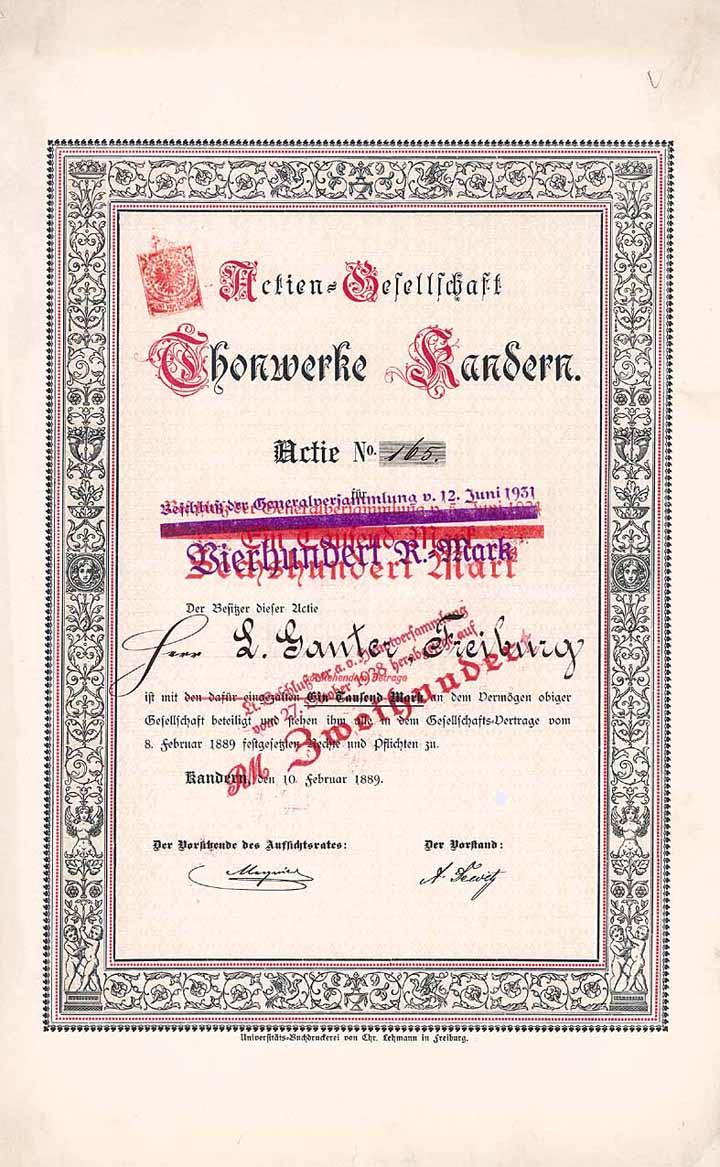 Actien-Gesellschaft
Thonwerke Kandern.
Actie No. 165.
für
Beschluß der Generalversammlung v. 12. Juni 1931
Generalversammlung v.
Ein Tausend Mark
Vierhundert R.-Mark
Sechshundert Mark
Der Besitzer dieser Actie
Herr L. Ganter, Freiburg
Lt. Beschluß der a. o. Hauptversammlung
vom 27. Oktober 1938 herabgesetzt auf
RM Zweihundert
stehendem Betrage
ist mit dem dafür eingezahlten Ein Tausend Mark an dem Vermögen obiger
Gesellschaft beteiligt und stehen ihm alle in dem Gesellschafts-Vertrage vom
8. Februar 1889 festgesetzten Rechte und Pflichten zu.
Kandern, den 10. Februar 1889.
Der Vorsitzende des Aufsichtsrates:
Der Vorstand:
Universitäts-Buchdruckerei von Chr. Lehmann in Freiburg.